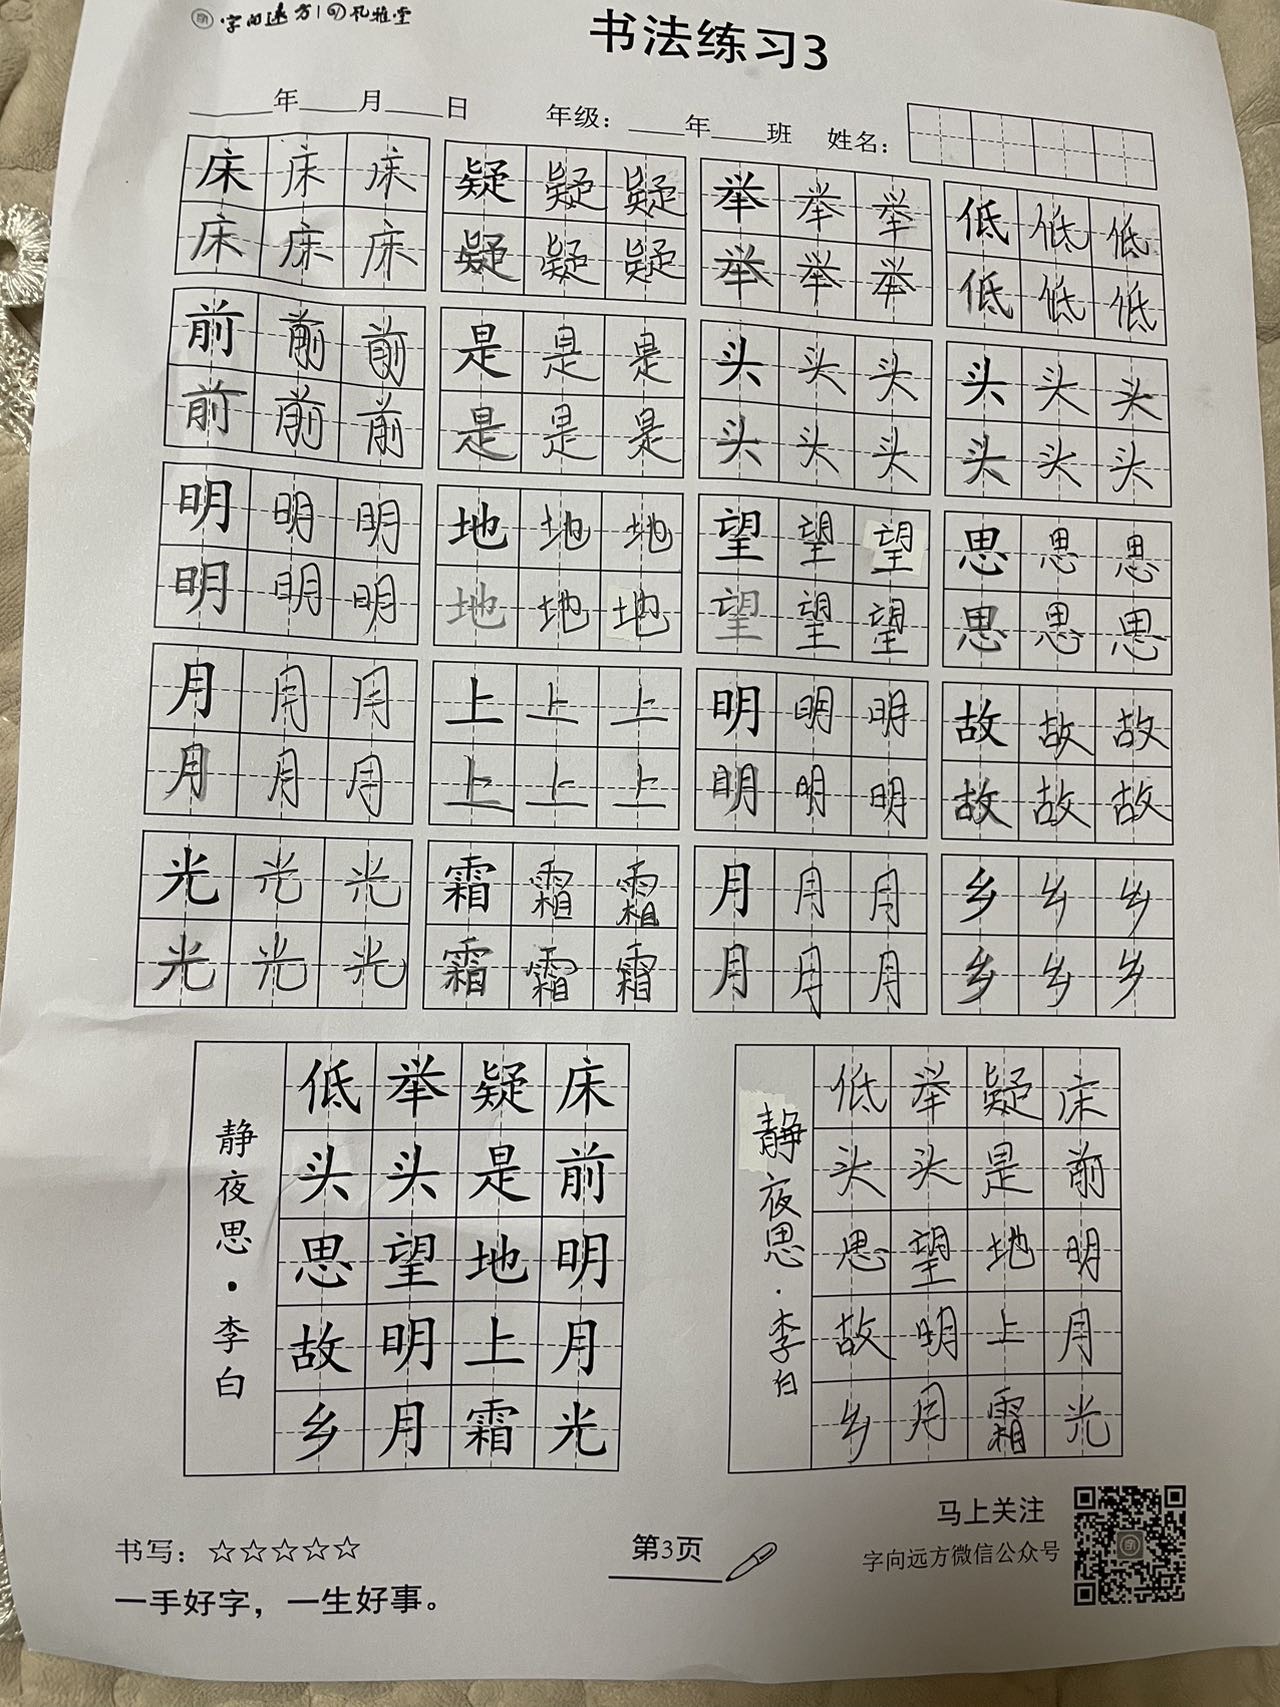 字向远方 | 孔雅堂
书法练习3
____年____月____日 年级：____年____班 姓名：
床床床 疑疑疑 举举举 低低低
床床床 疑疑疑 举举举 低低低
前前前 是是是 头头头 头头头
前前前 是是是 头头头 头头头
明明明 地地地 望望望 思思思
明明明 地地地 望望望 思思思
月月月 上上上 明明明 故故故
月月月 上上上 明明明 故故故
光光光 霜霜霜 月月月 乡乡乡
光光光 霜霜霜 月月月 乡乡乡
床前明月光
疑是地上霜
举头望明月
低头思故乡
静夜思·李白
床前明月光
疑是地上霜
举头望明月
低头思故乡
静夜思·李白
书写：☆☆☆☆☆
一手好字，一生好事。
第3页
马上关注
字向远方微信公众号